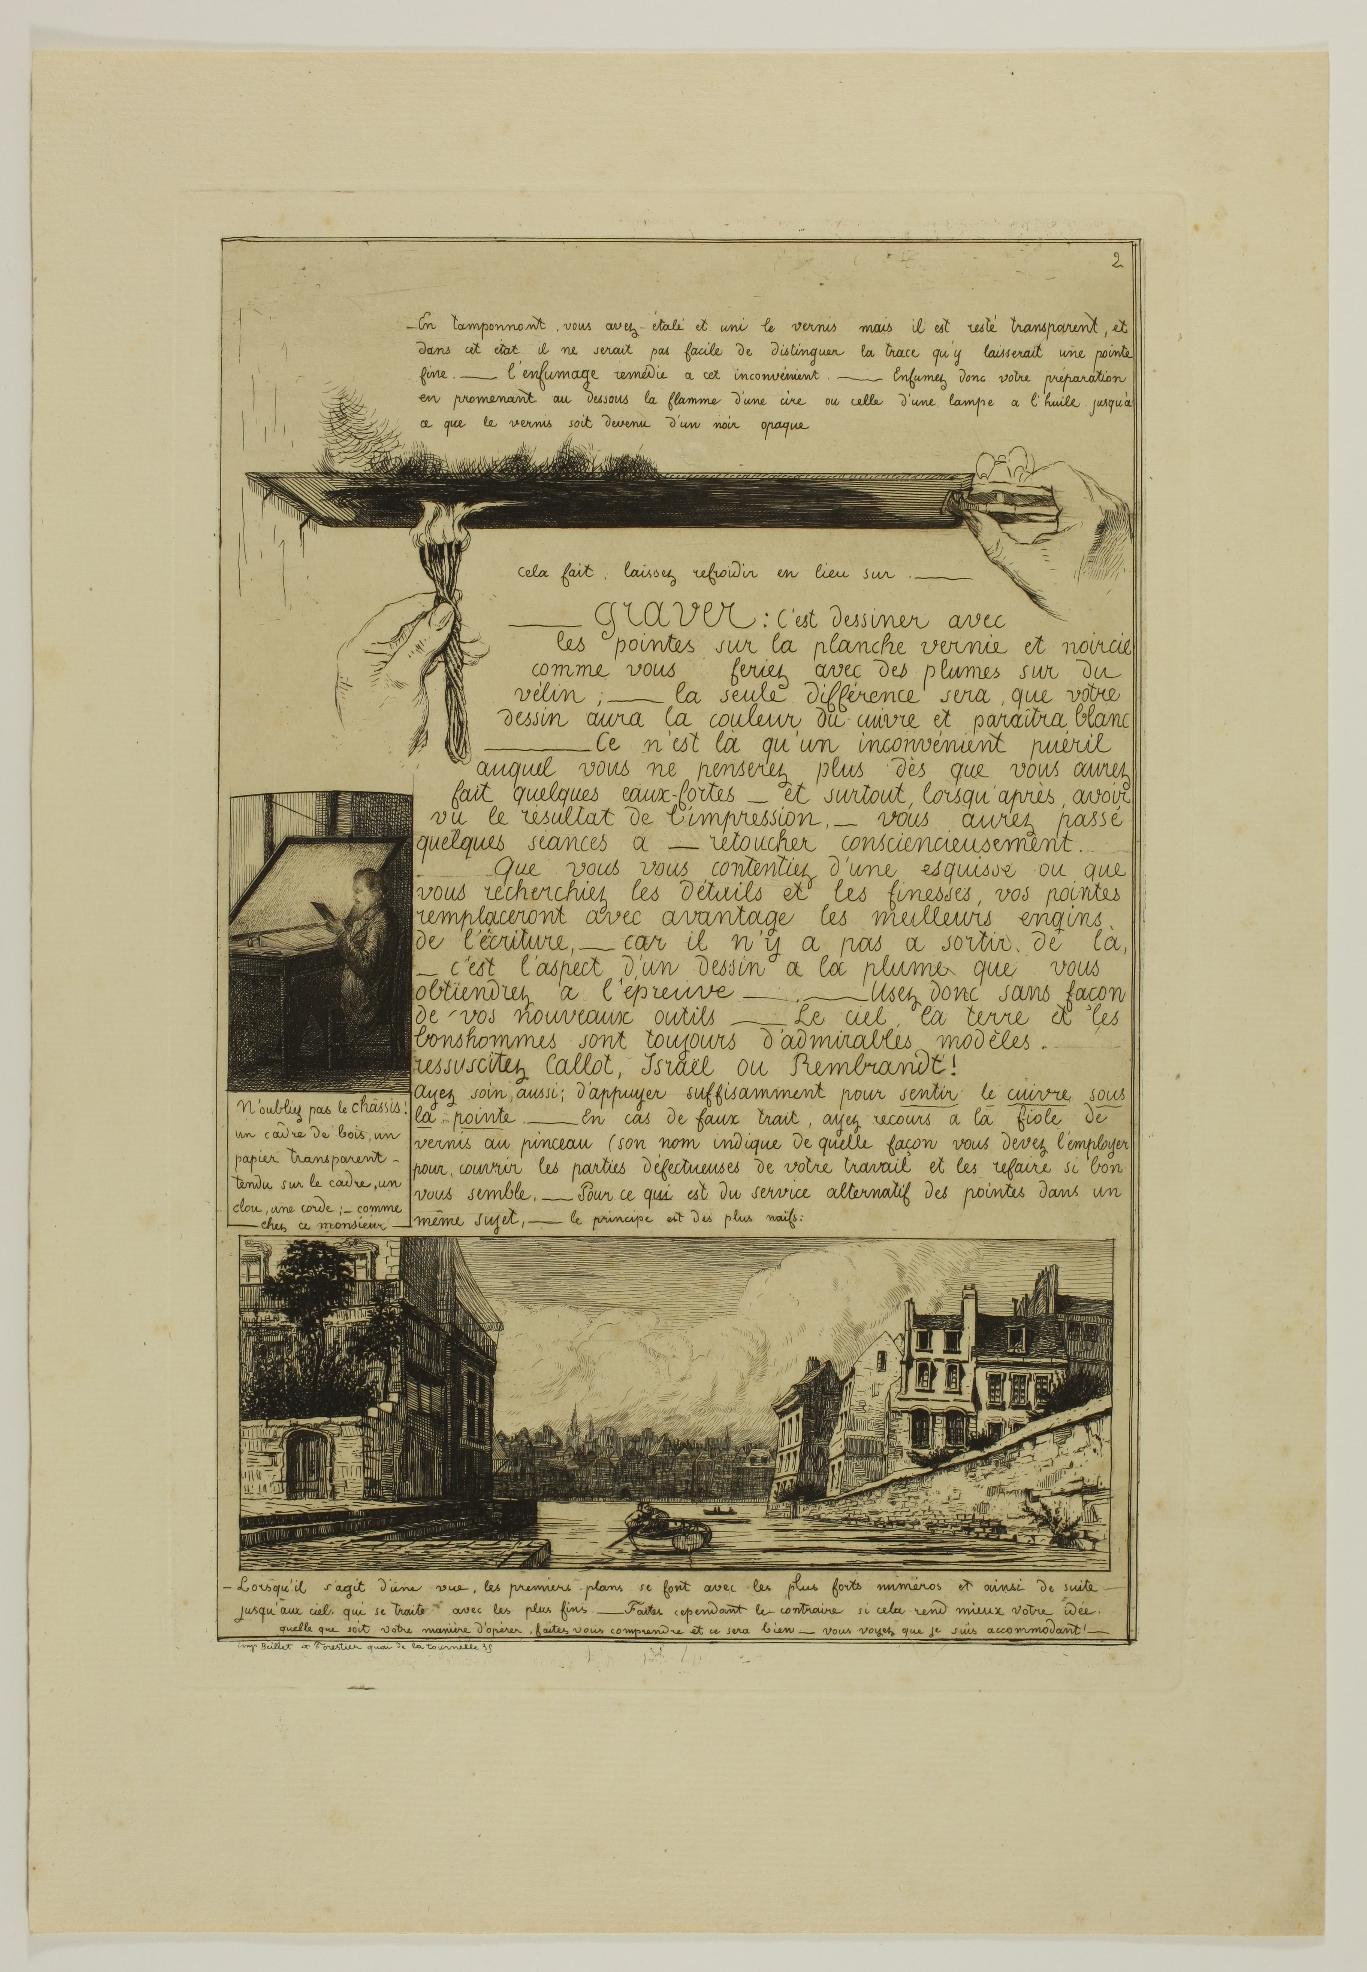 2
_En tamponnant, vous avez étalé et uni le vernis mais il est resté transparent, et
dans cet état il ne serait pas facile de distinguer la trace qu'y laisserait une pointe
fine. ___ l'enfumage remédie a cet inconvénient. ___ Enfumez donc votre préparation
en promenant au dessous la flamme d'une cire ou celle d'une lampe a l'huile jusqu'à
ce que le vernis soit devenu d'un noir opaque
Cela fait, laissez refroidir en lieu sur. ___
___ Graver : C'est dessiner avec
les pointes sur la planche vernie et noircie
comme vous feriez avec des plumes sur du
vélin ; ___ la seule différence sera, que votre
dessin aura la couleur du cuivre et paraitra blanc
___ Ce n'est là qu'un inconvénient puéril
auquel vous ne penserez plus dès que vous aurez
fait quelques eaux-fortes _ et surtout, lorsqu'après avoir
vu le résultat de l'impression, _ vous aurez passé
quelques séances a _ retoucher consciencieusement.
Que vous vous contentiez d'une esquisse ou que
vous recherchiez les détails et les finesses, vos pointes
remplaceront avec avantage les meilleurs engins
de l'écriture, __ car il n'y a pas a sortir de là,
_ c'est l'aspect d'un dessin a la plume que vous
obtiendrez a l'épreuve ___ . ___ Usez donc sans façon
de vos nouveaux outils ___ Le ciel, la terre et les
bonshommes sont toujours d'admirables modèles. ___
ressuscitez Callot, Israël ou Rembrandt !
Ayez soin, aussi ; d'appuyer suffisamment pour sentir le cuivre sous
la pointe. ___ En cas de faux trait, ayez recours a la fiole de
vernis au pinceau (son nom indique de quelle façon vous devez l'employer
pour couvrir les parties défectueuses de votre travail et les refaire si bon
vous semble. ___ Pour ce qui est du service alternatif des pointes dans un
même sujet, ___ le principe est des plus naïfs:
N'oubliez pas le châssis !
un cadre de bois, un
papier transparent -
tendu sur le cadre, un
clou, une corde ; - comme
___ chez ce monsieur ___
_ Lorsqu'il s'agit d'une vue, les premiers plans se font avec les plus forts numéros et ainsi de suite _
jusqu'aux ciel qui se traite avec les plus fins. ___ Faites cependant le contraire si cela rend mieux votre idée.
quelle que soit votre manière d'opérer, faites vous comprendre et ce sera bien _ vous voyez que je suis accommodant ! _
Imp Beillet et Forestier quai de la tournelle 35